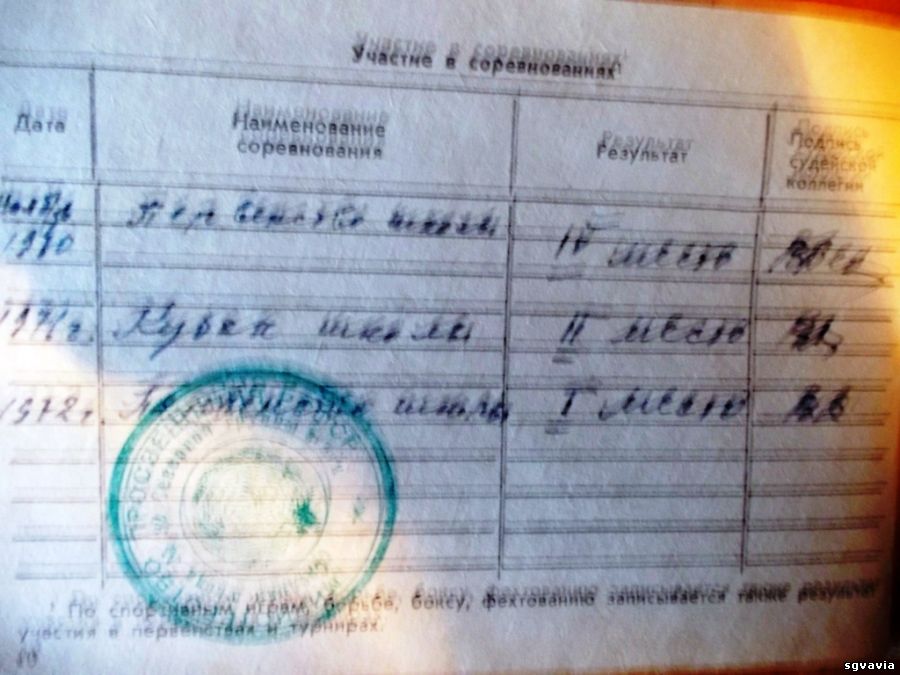 Участие в соревнованиях¹
Дата
Наименование
соревнования
Результат
Подпись
судейской
коллегии
1970
Первенство школы
IV место
1971 г.
Кубок школы
II место
1972 г.
Первенство школы
I место
ПРОСВЕЩЕНИЯ
¹ По спортивным играм, борьбе, боксу, фехтованию записывается также результат
участия в первенствах и турнирах.
10
sgvavia